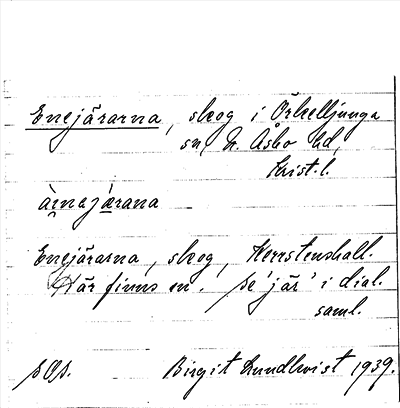 Enejärarna, skog i Örkelljunga
sn, N. Åsbo hd,
Krist. l.
àrnajærana
Enejärarna, skog, Herrstenshall.
Här finns en. Se 'jär' i dial.
saml.
Birgit Lundkvist 1939.